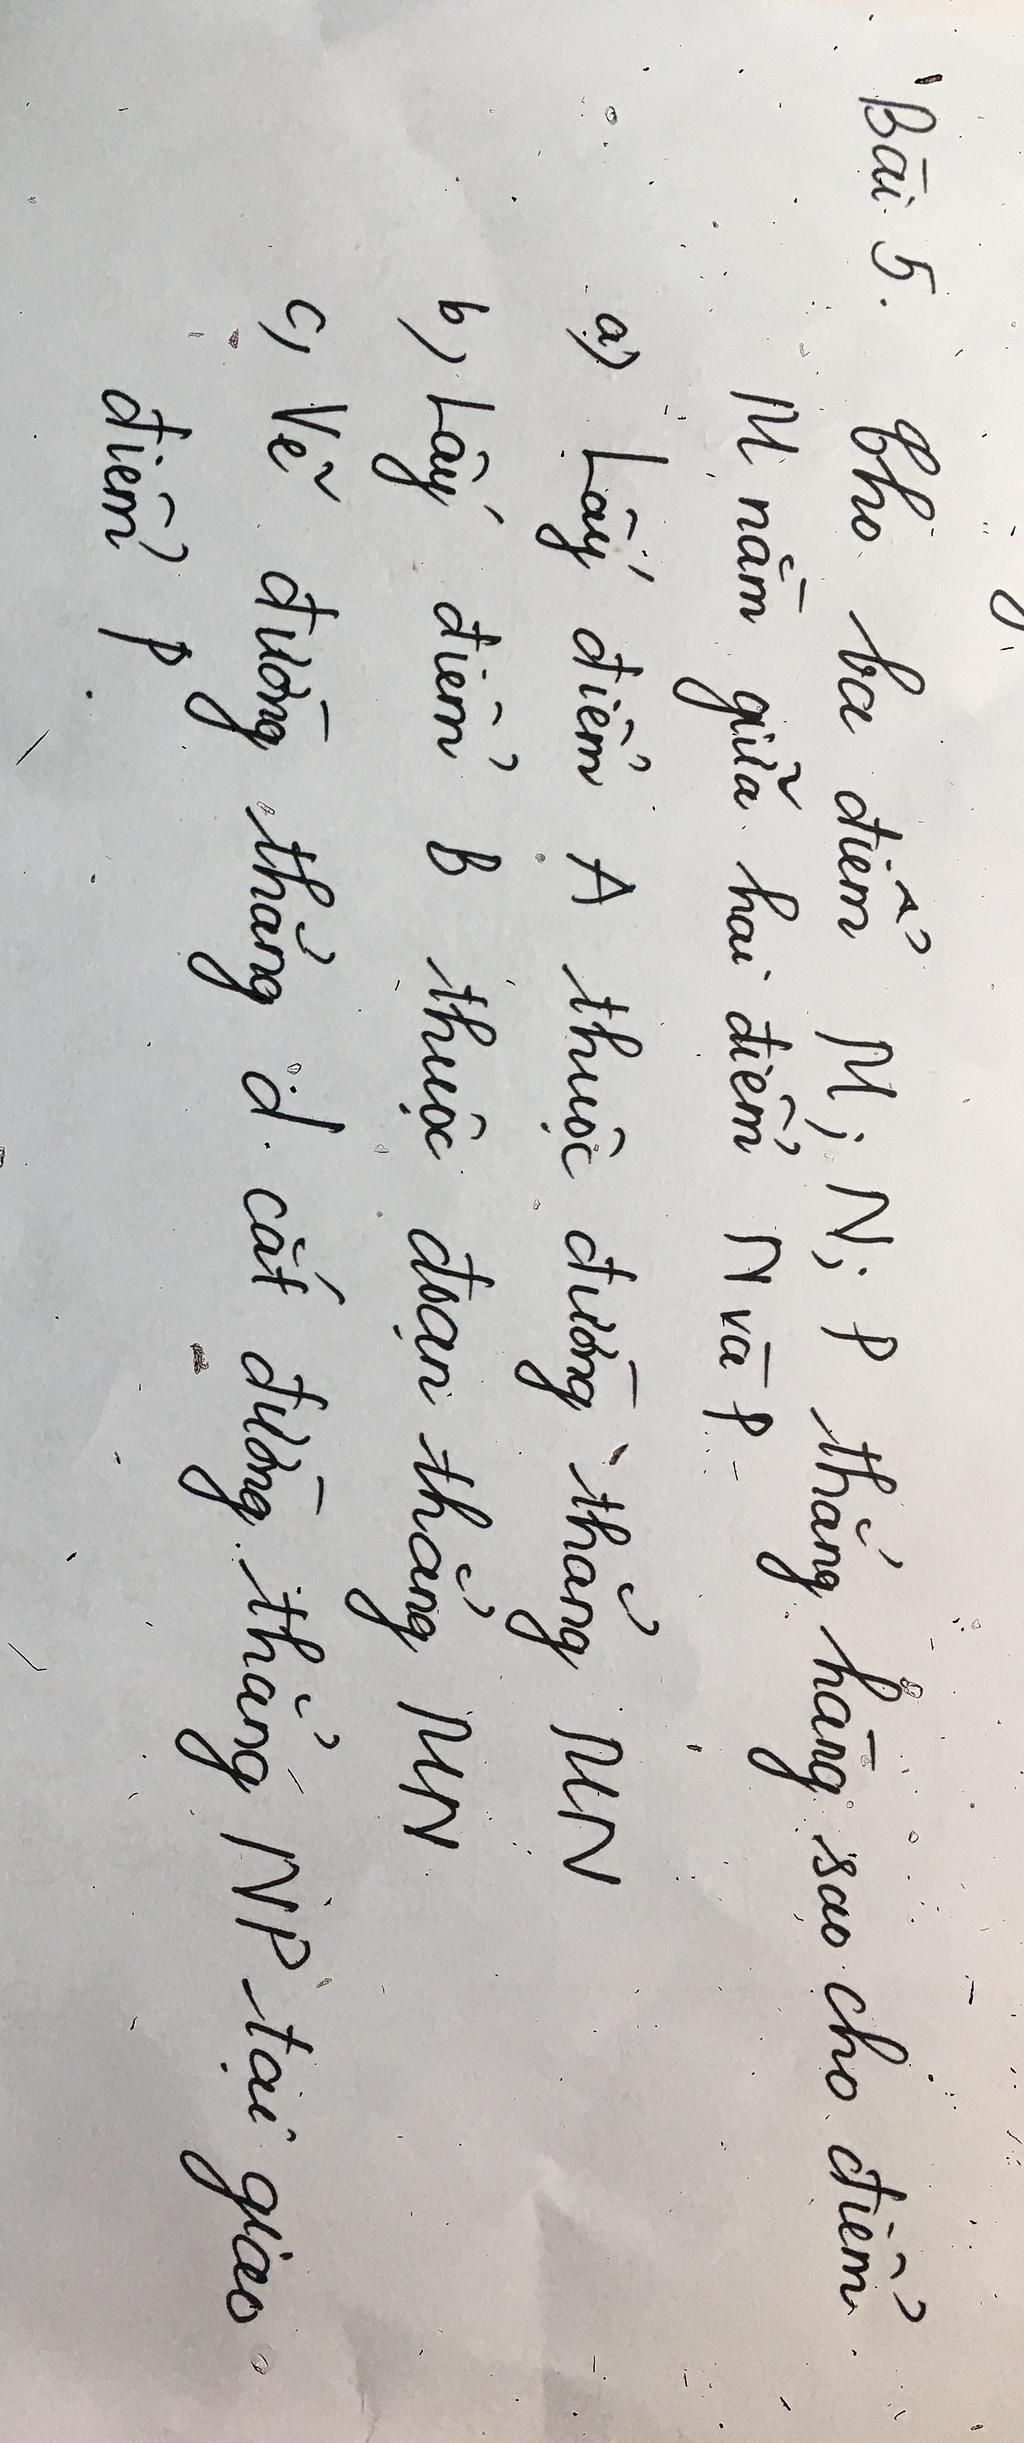 Bài 5. Cho ba điểm M; N; P thẳng hàng sao cho điểm
M nằm giữa hai điểm N và P
a) Lấy điểm A thuộc đường thẳng MN
b) Lấy điểm B thuộc đoạn thẳng MN
c) Vẽ đường thẳng d cắt đường thẳng NP tại giao
điểm P.